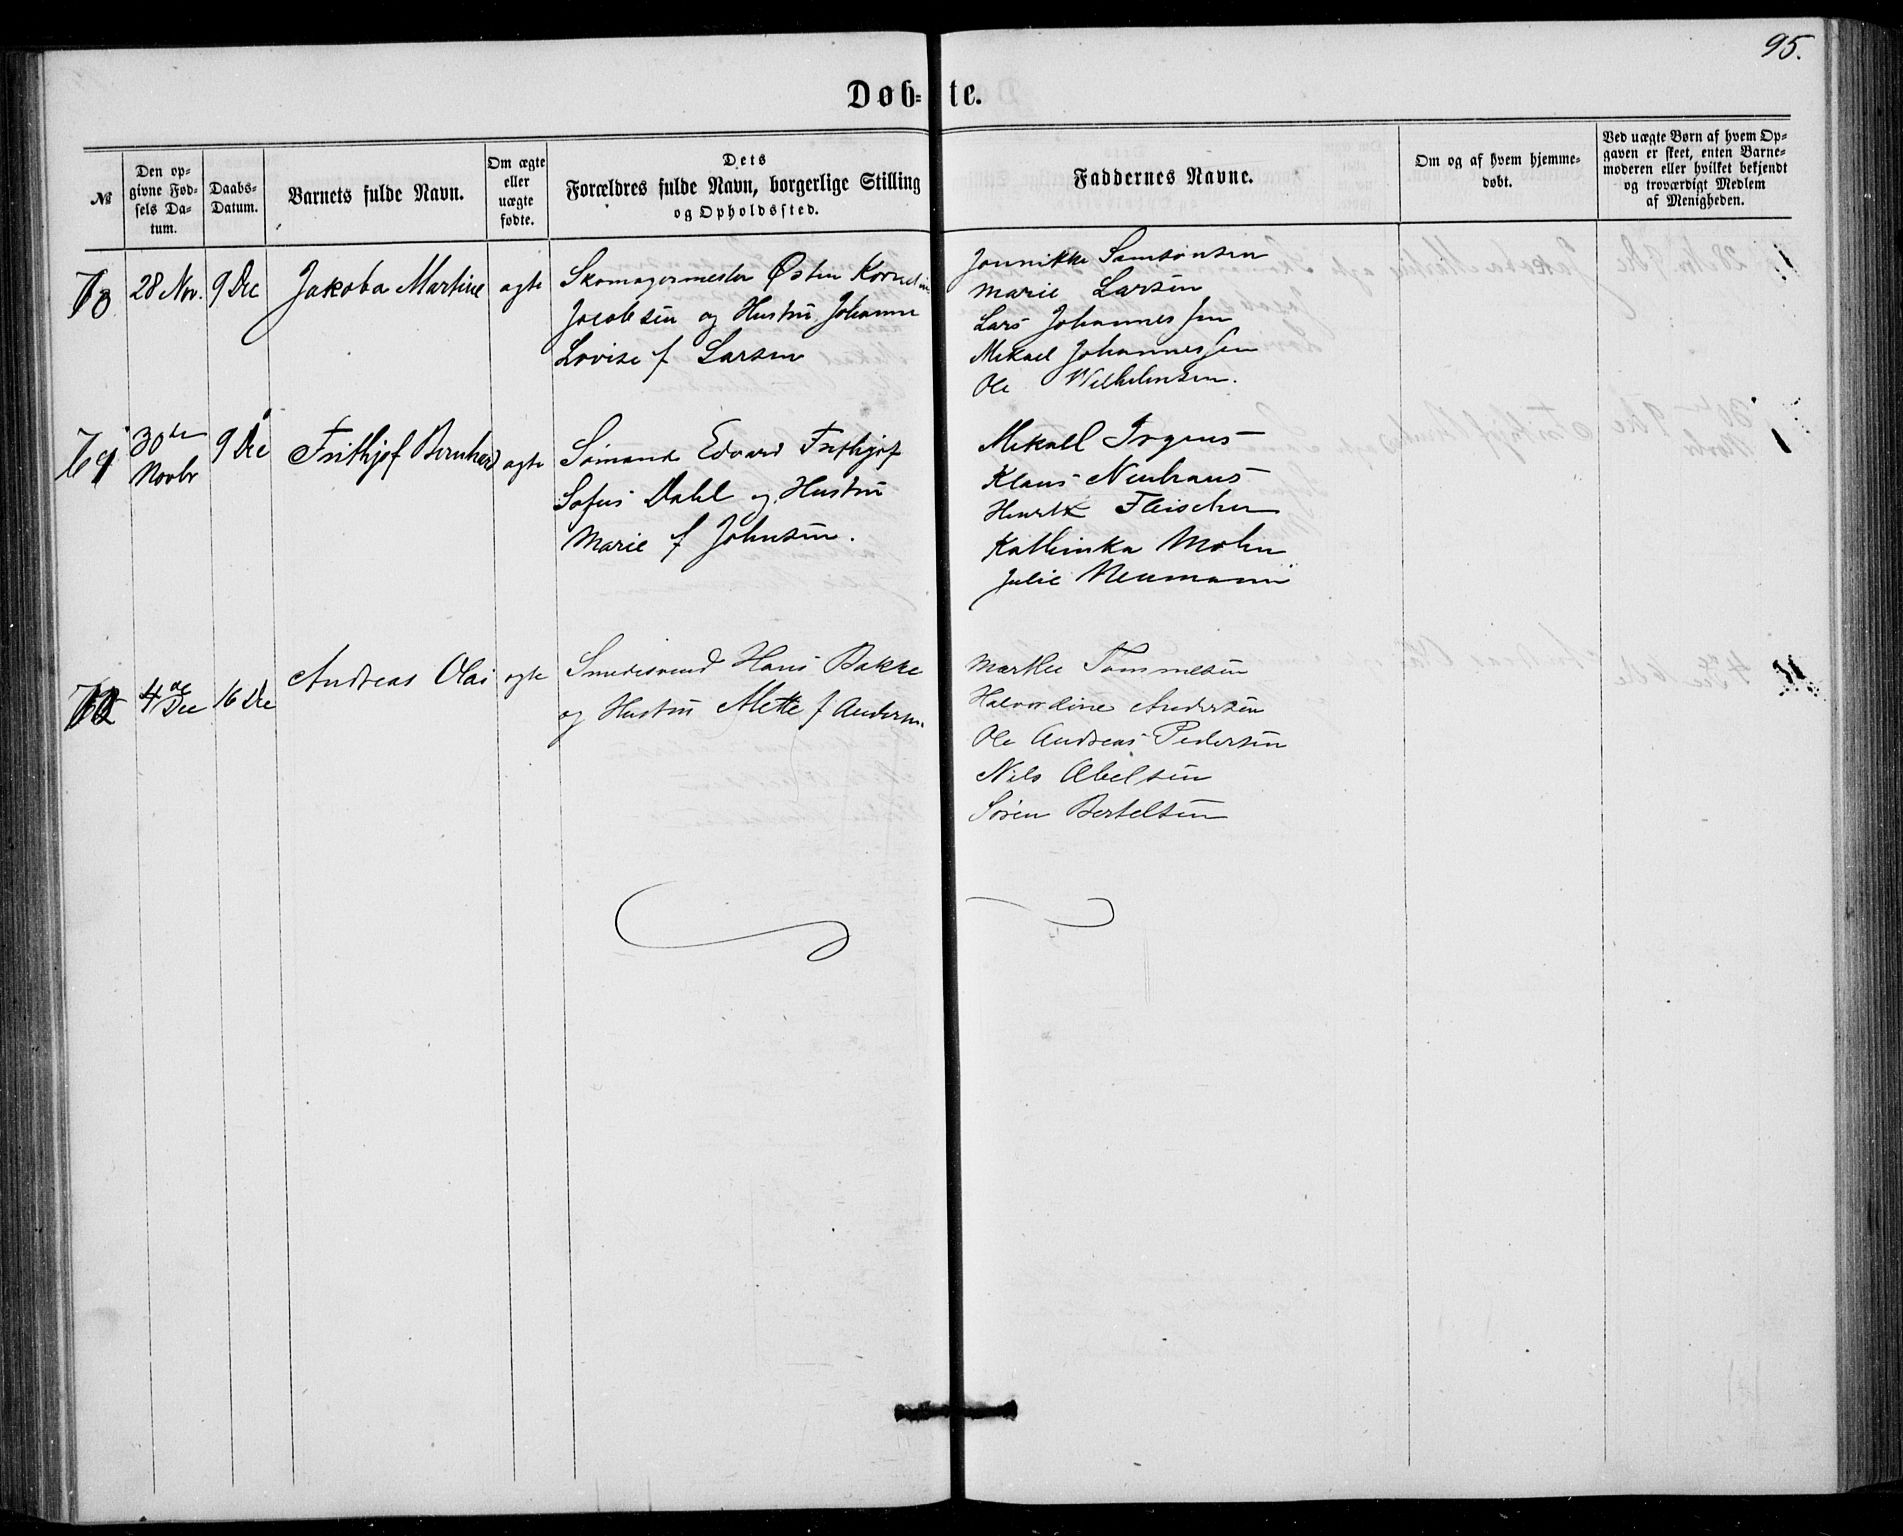 95.
Døb- te.
№
Den op-
givne Fød-
sels Da-
tum.
Daabs-
Datum.
Barnets fulde Navn.
Om ægte
eller
uægte
fødte.
Dets
Forældres fulde Navn, borgerlige Stilling
og Opholdssted.
Faddernes Navne.
Om og af hvem hjemme-
døbt.
Ved uægte Børn af hvem Op-
gaven er skeet, enten Barne-
moderen eller hvilket bekjendt
og troværdigt Medlem
af Menigheden.
28 Nov.
9 Dec
Jakoba Martine
ægte
Skomagermester Østen
Jacobsen og Hustru Johanne
Lovise f Larsen
Jonnikke Samsonsen
Marie Larsen
Lars Johannessen
Mikael Johannessen
Ole Wilhelmsen.
30te
Novbr
9 Dec
Frithjof Bernhard
ægte
Sømand Edvard Frithjof
Sofus Dahl og Hustru
Marie f Johnsen.
Mikael Irgens
Klaus Neuhaus
Henrik Fleischer
Kathinka Mohn
Julie Neumann
4de
Dec
16 Dec
Andreas Olai
ægte
Smedesvend Hans Bakke
og Hustru Mette f Andersen
Marthe Tommesen
Halvordine Andersen
Ole Andreas Pedersen
Nils Abelsen
Søren Bertelsen